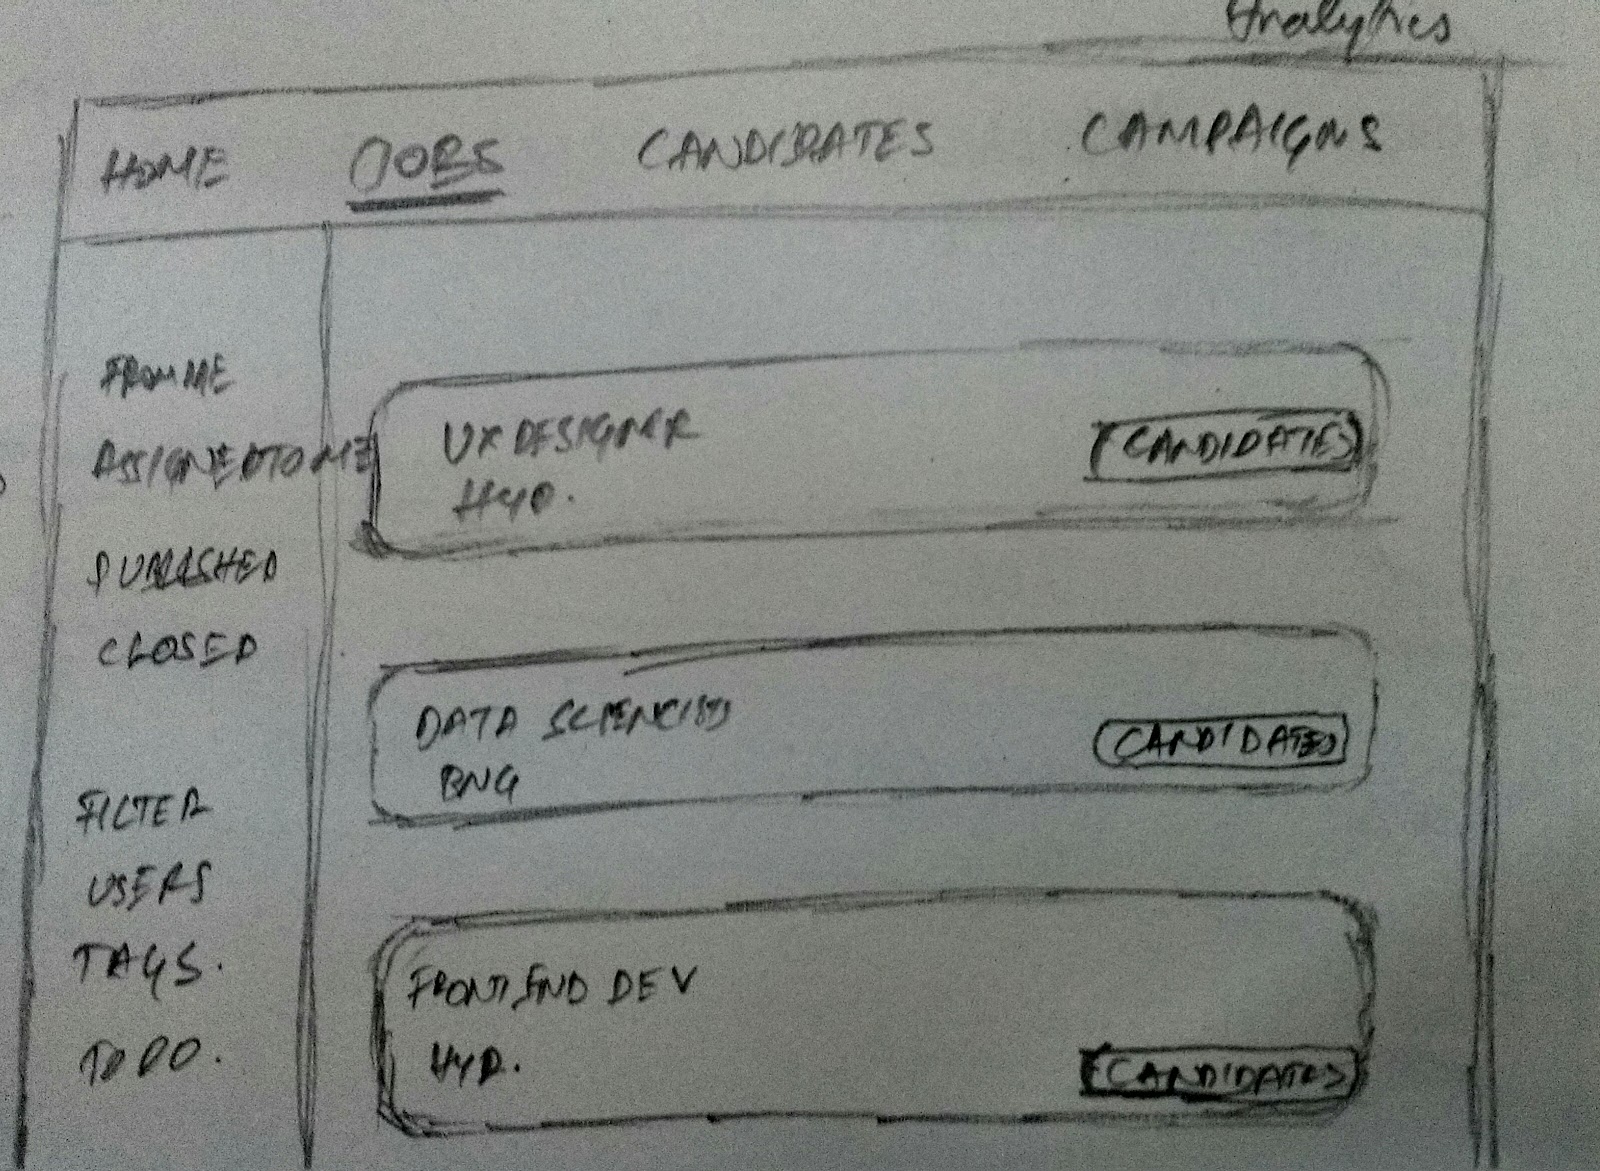 Analytics
HOME JOBS CANDIDATES CAMPAIGNS
FROM ME
ASSIGNED TO ME
PUBLISHED
CLOSED
FILTER
USERS
TAGS.
TODO.
UX DESIGNER
HYD.
CANDIDATES
DATA SCIENCIST
BNG
CANDIDATES
FRONT END DEV
HYD.
CANDIDATES